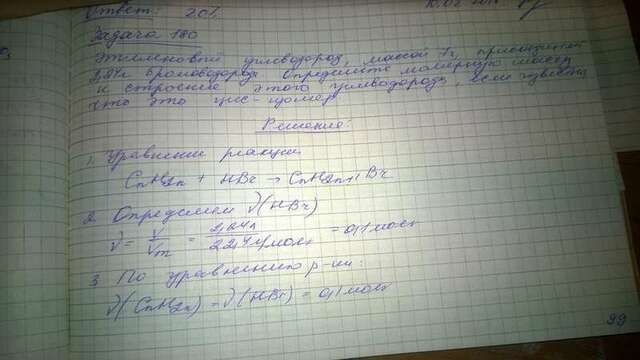 Ответ: 20%
Задача 180
Этиленовый углеводород, массой 7г, присоединяет
2,24л бромоводорода. Определите молярную массу
и строение этого углеводорода, если известно
что это цис-изомер
Решение:
1. Уравнение реакции
CnH2n + HBr → CnH2n+1Br
2. Определяем ν(HBr)
ν = V/Vm = 2,24л/22,4л/моль = 0,1 моль
3. По уравнению р-ии:
ν(CnH2n) = ν(HBr) = 0,1 моль
99